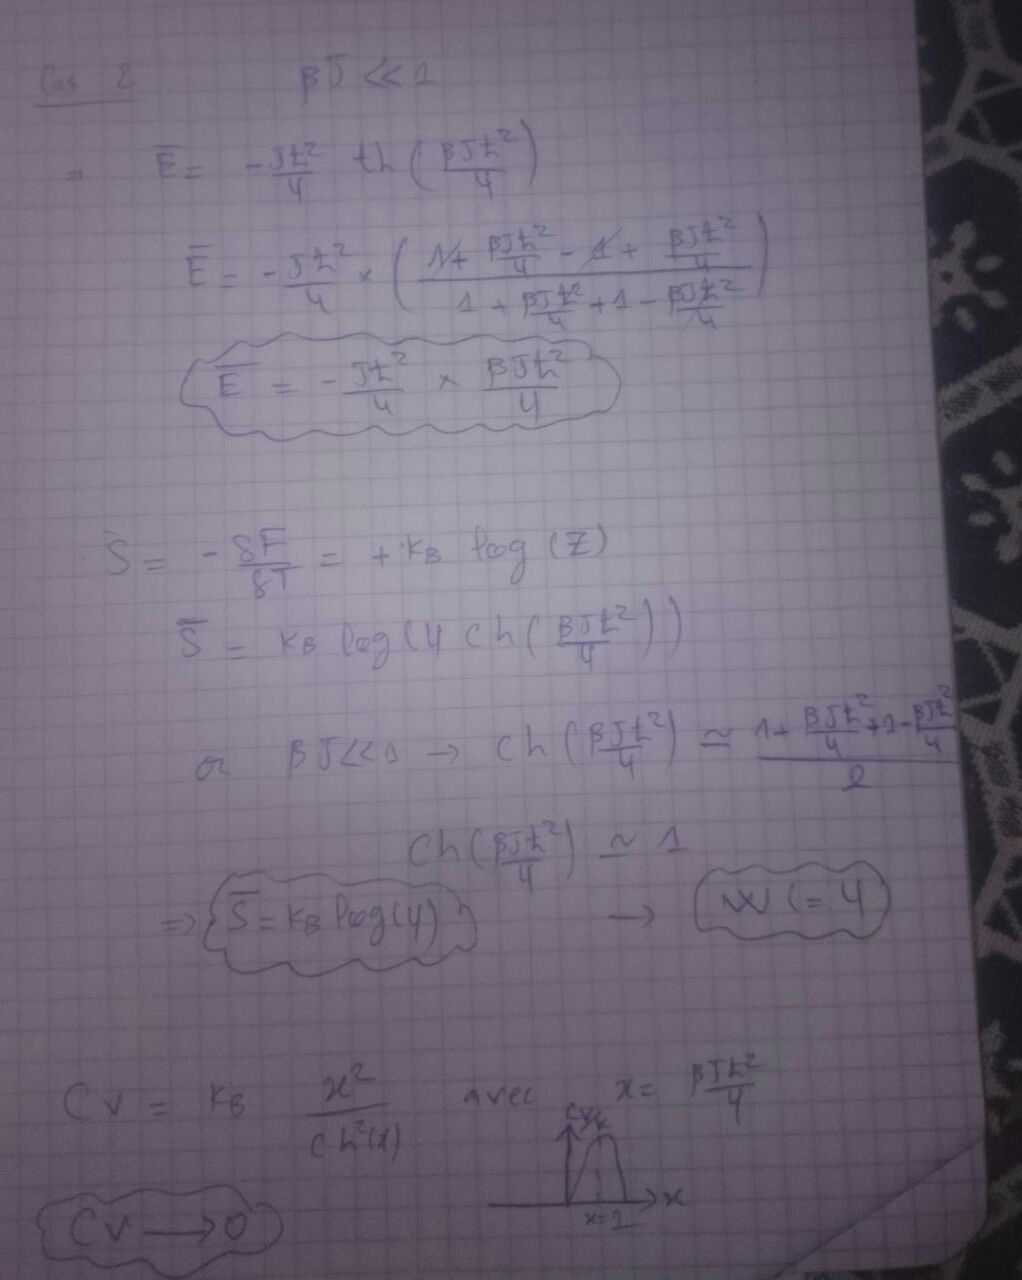 Cas 2 βJ << 1
= Ē = -Jħ²/4 th(βJħ²/4)
Ē = -Jħ²/4 × ((1 + βJħ²/4 - 1 + βJħ²/4)/(1 + βJħ²/4 + 1 - βJħ²/4))
Ē = -Jħ²/4 × βJħ²/4
S̄ = -δF/δT = +kB log(Z)
S̄ = kB log(4 ch(βJħ²/4))
or βJ << 1 → ch(βJħ²/4) ≃ (1 + βJħ²/4 + 1 - βJħ²/4)/2
ch(βJħ²/4) ≃ 1
⇒ S̄ = kB log(4) → W = 4
Cv = kB x²/ch²(x) avec x = βJħ²/4
Cv
x
x=1
Cv → 0